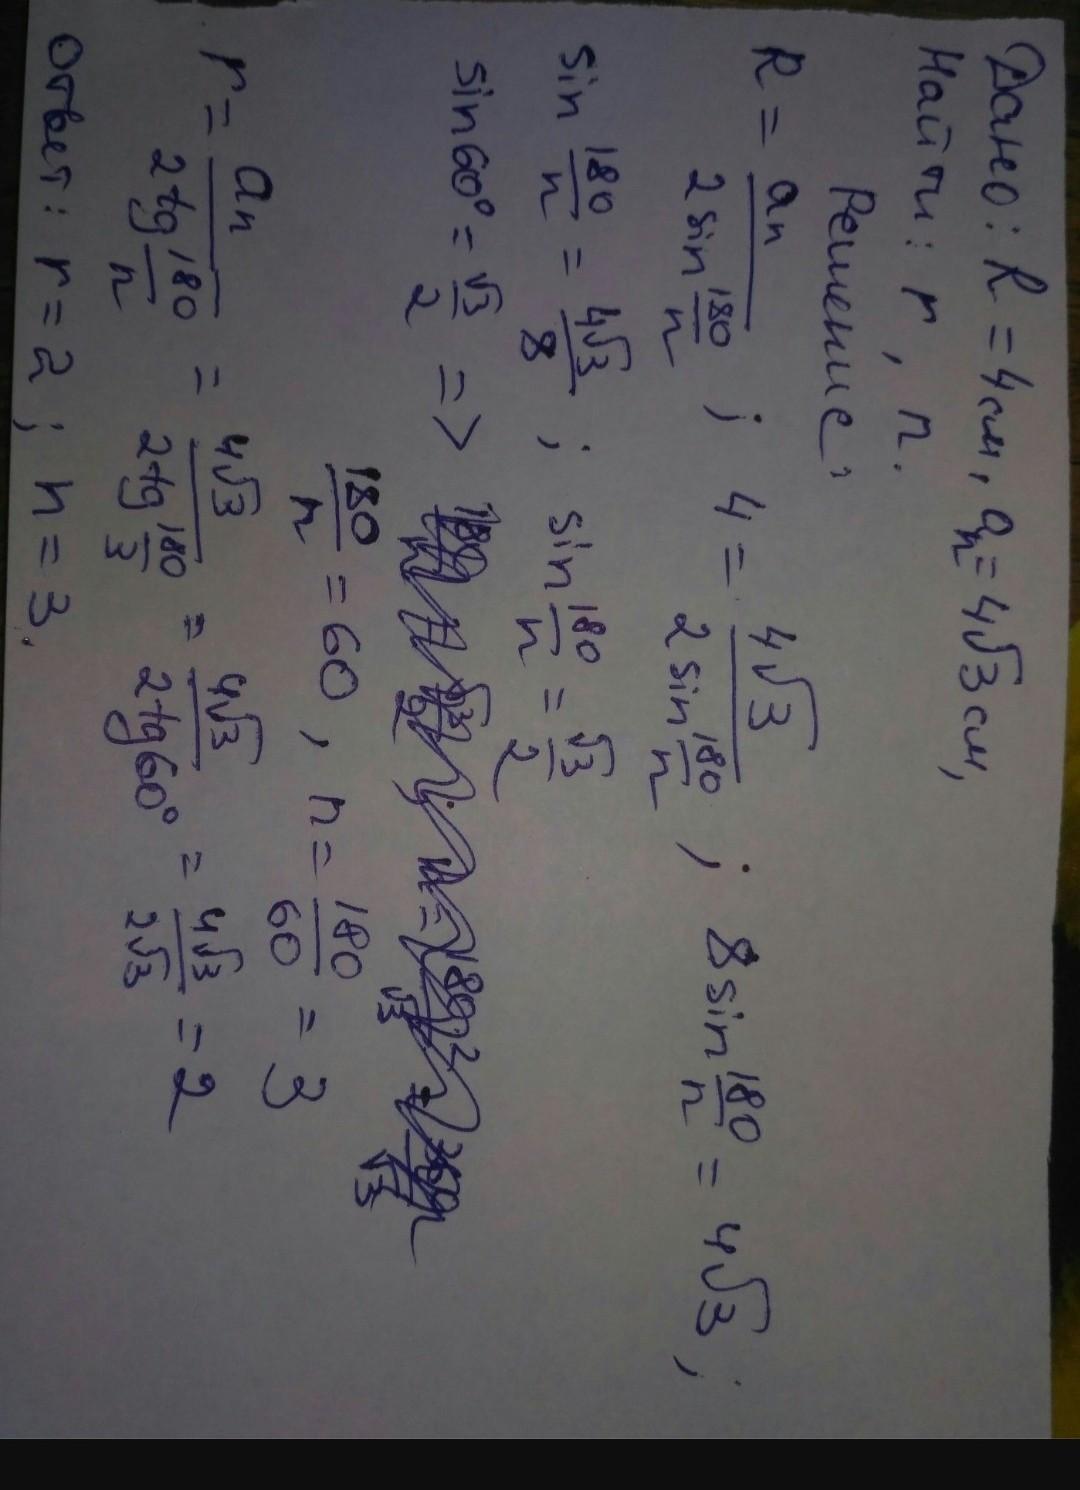 Дано: R = 4см, aₙ = 4√3 см,
Найти: r, n.
Решение:
R = aₙ / (2 sin 180/n) ; 4 = 4√3 / (2 sin 180/n) ; 8 sin 180/n = 4√3 ;
sin 180/n = 4√3/8 ; sin 180/n = √3/2
sin 60° = √3/2 =>
180/n = 60, n = 180/60 = 3
r = aₙ / (2 tg 180/n) = 4√3 / (2 tg 180/3) = 4√3 / (2 tg 60°) = 4√3 / 2√3 = 2
Ответ: r = 2 ; n = 3.